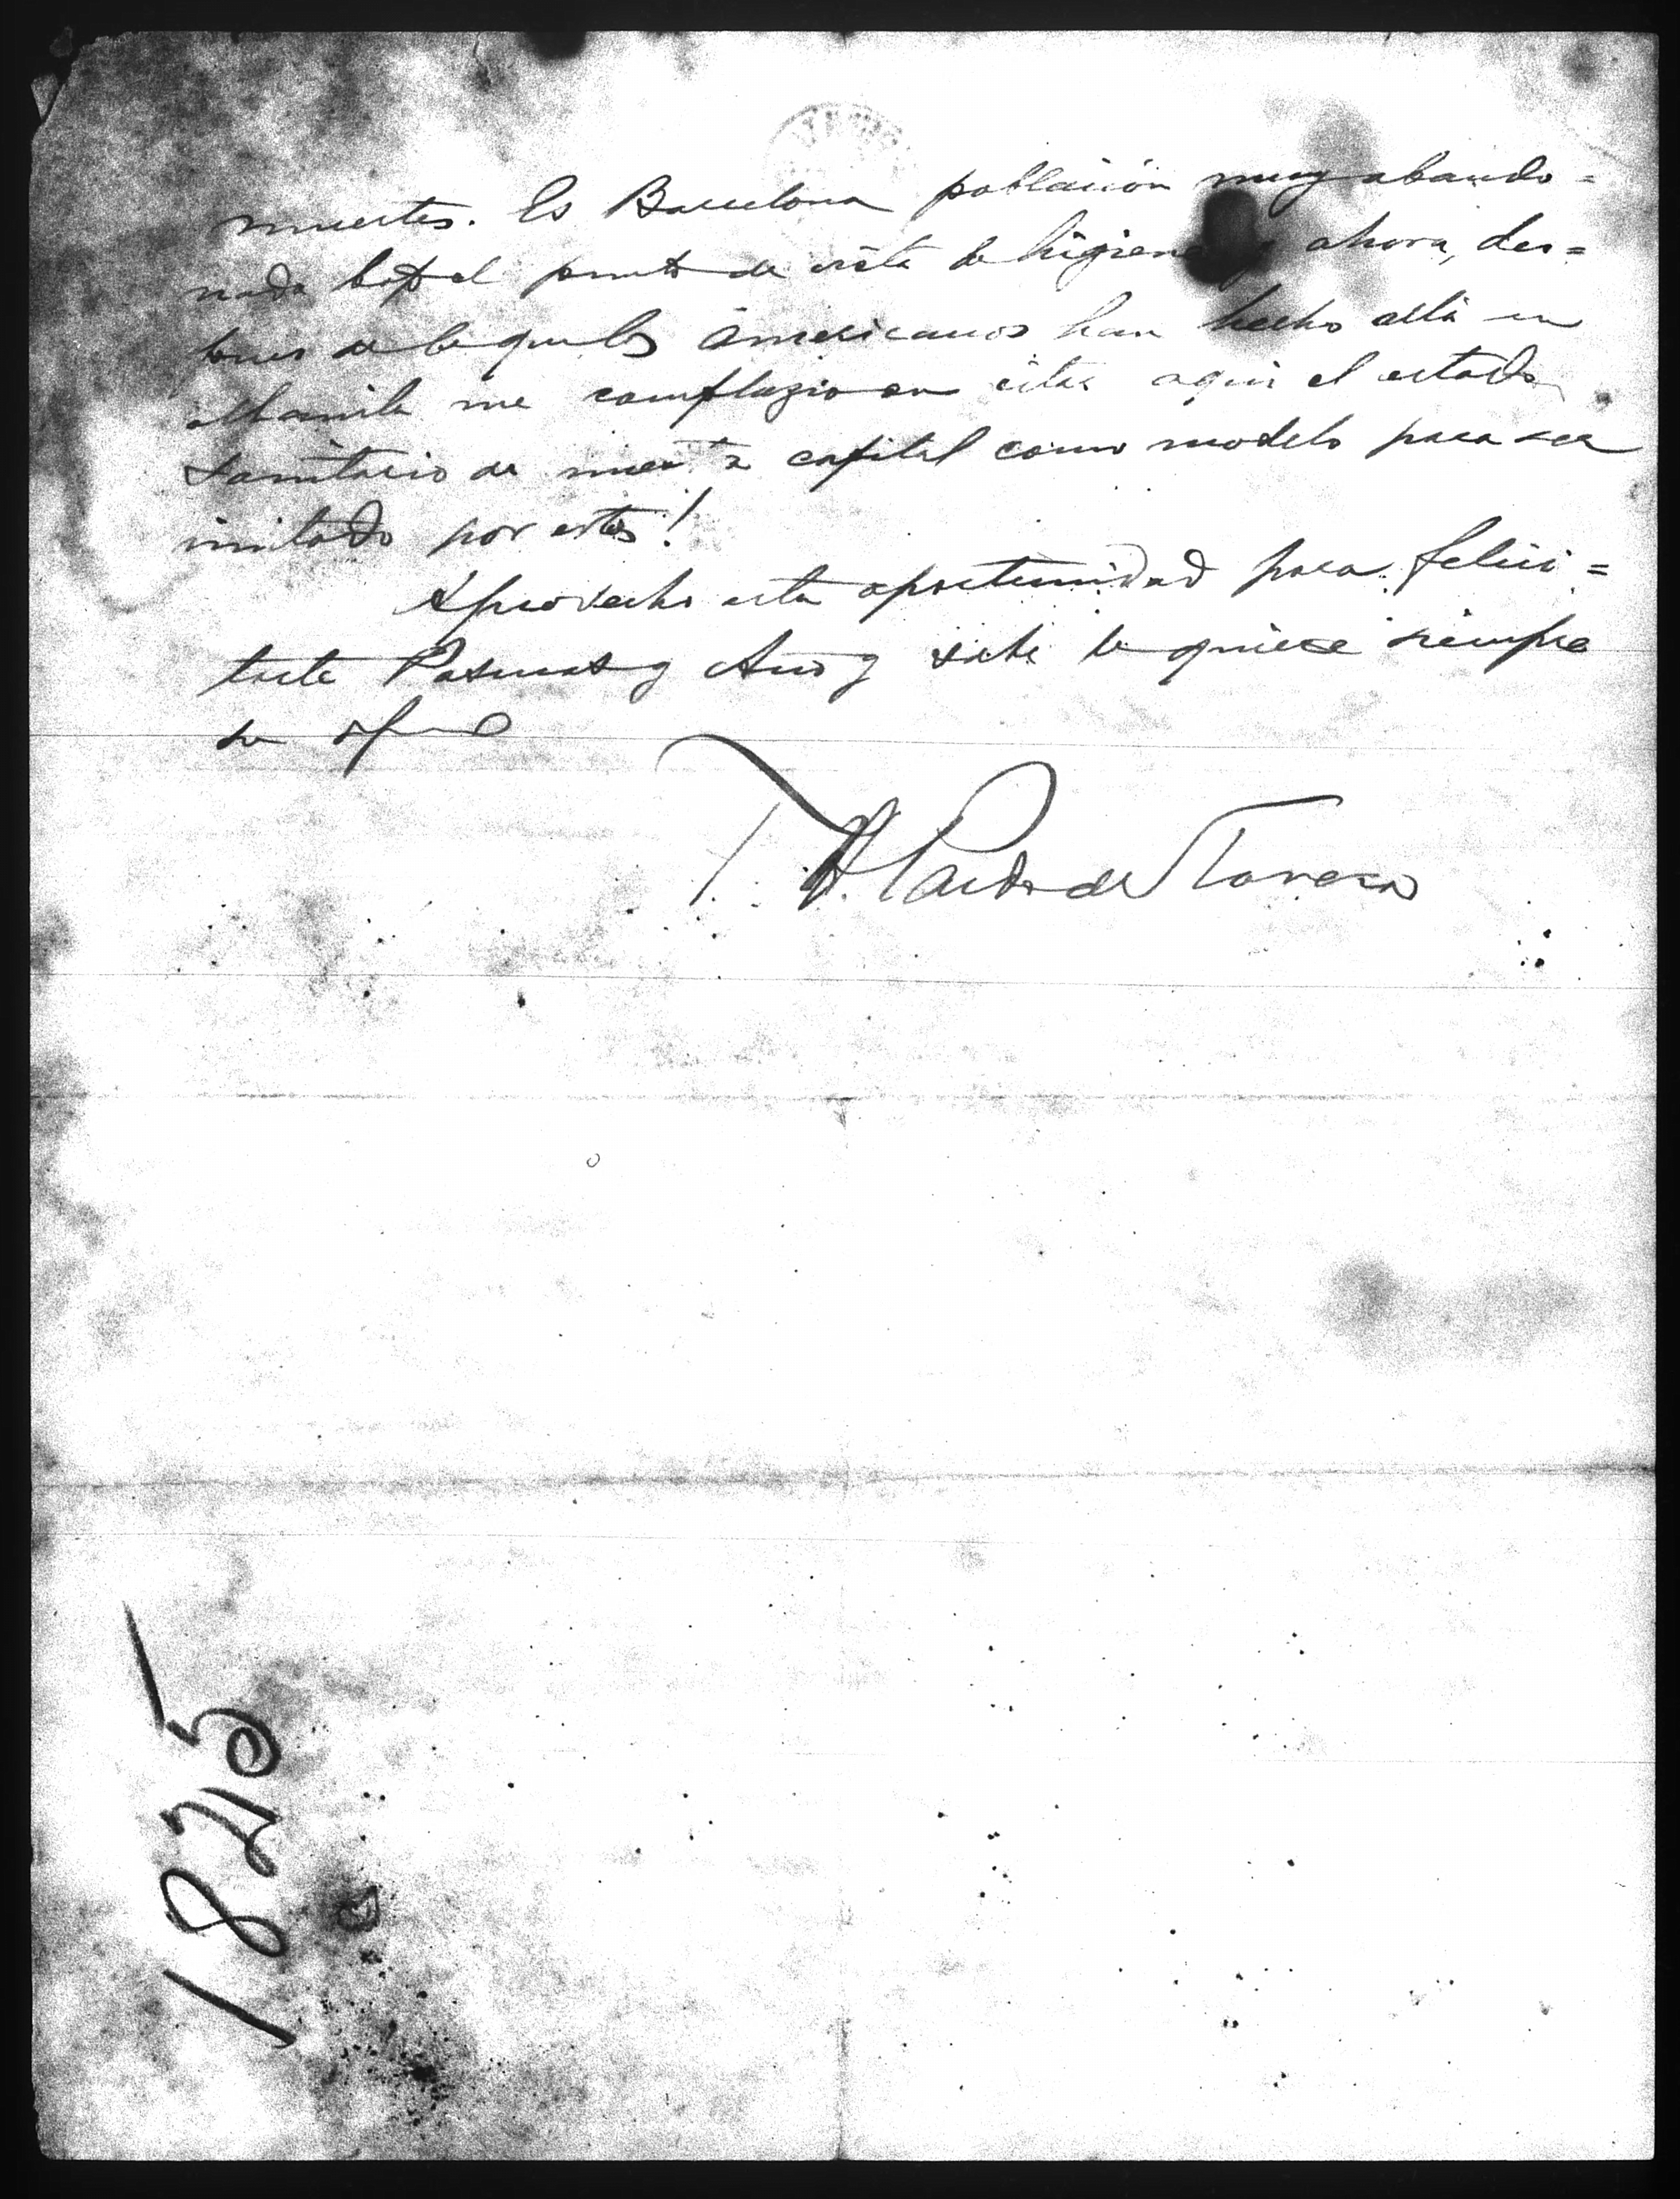 muertes. Es Barcelona población muy abando=
nada bajo el punto de vista de higiene y ahora, des=
pues de lo que los Americanos han hecho allá en
Manila me complazco en citar aqui el estado
sanitario de nuestra capital como modelo para ser
imitado por estos!
Aprovecho esta oportunidad para felici=
tarte Pascuas y Año y sabe te quiere siempre
su
T. H. Pardo de Tavera
1825